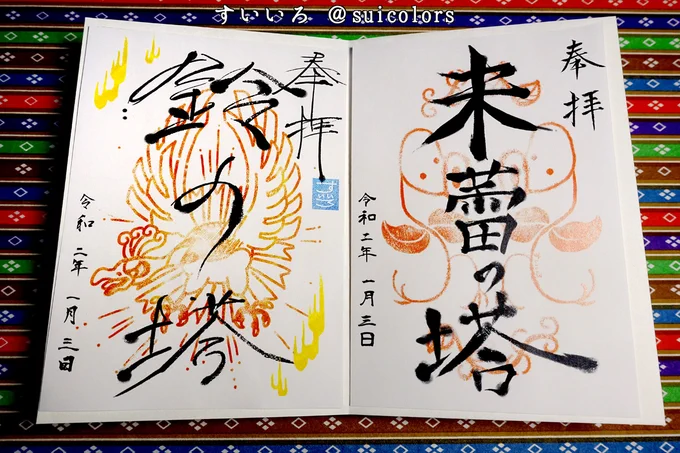 すいいろ @suicolors
奉拝
未蕾の塔
令和二年 一月三日
奉拝
鈴の塔
令和二年 一月三日
すいいろ